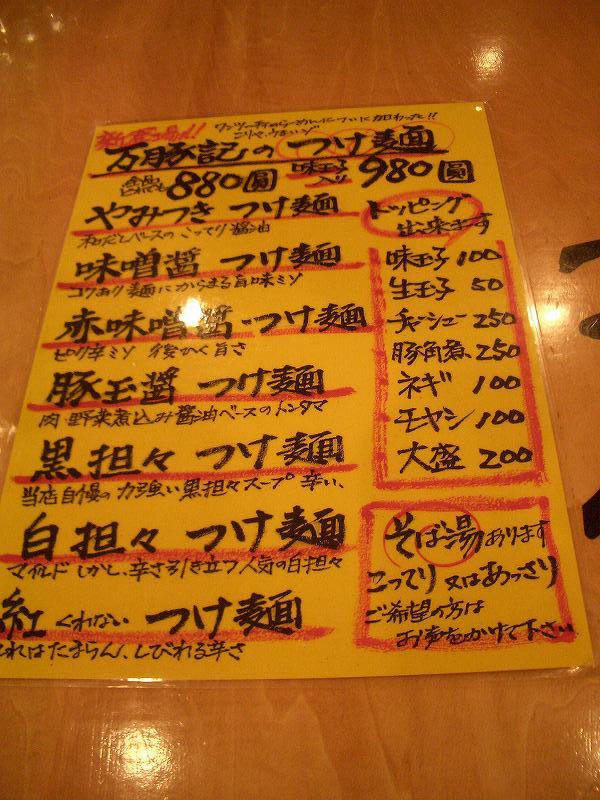 新登場!!
ワンツー杯のらーめんについに加わった!!
こりゃ、うまいゾ
万豚記のつけ麺
全品どれでも 880圓 味玉子入り 980圓
やみつき つけ麺
和だしベースのこってり醤油
味噌醤 つけ麺
コクあり麺にからまる旨味ミソ
赤味噌醤・つけ麺
ピリ辛ミソ 後ひく旨さ
豚玉醤 つけ麺
肉・野菜煮込み醤油ベースのトンタマ
黒担々 つけ麺
当店自慢の力強い黒担々スープ 辛い、
白担々 つけ麺
マイルドしかし、辛さ引き立つ人気の白担々
紅 くれない つけ麺
これはたまらん、しびれる辛さ
トッピング
出来ます
味玉子 100
生玉子 50
チャーシュー 250
豚角煮 250
ネギ 100
モヤシ 100
大盛 200
そば湯あります
こってり 又はあっさり
ご希望の方は
お声をかけて下さい